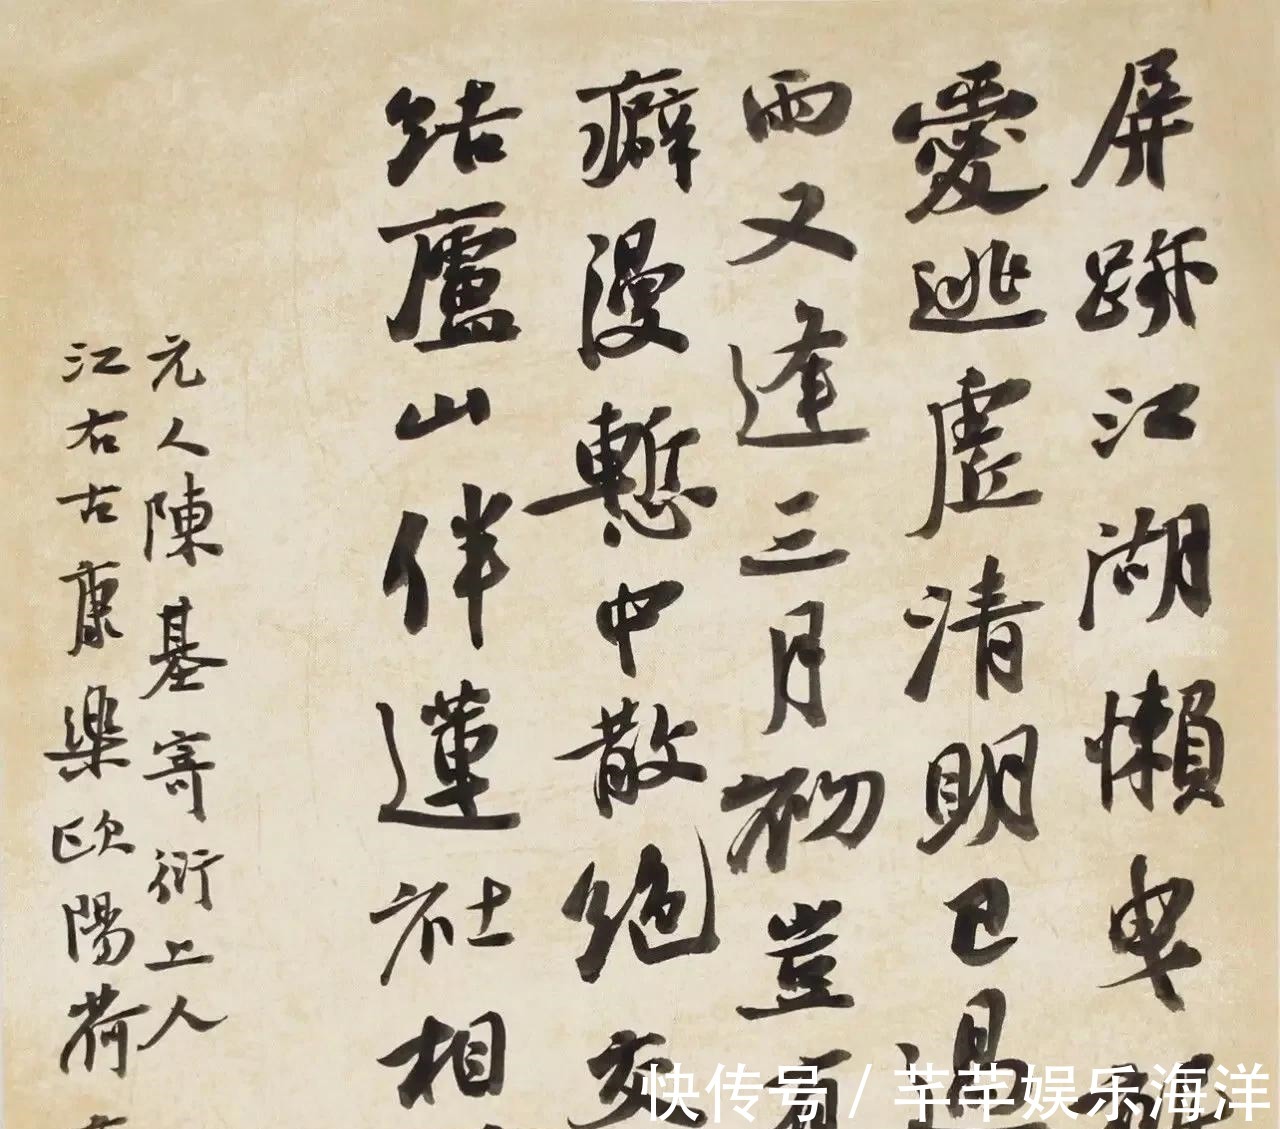 屏跡江湖懶曳
愛逃虛清明已過
雨又逢三月初豈有
癖漫慙中散絕交
結廬山伴蓮社相
元人陳基寄衍上人
江右古康樂歐陽荷
快传号 / 芊芊娱乐海洋